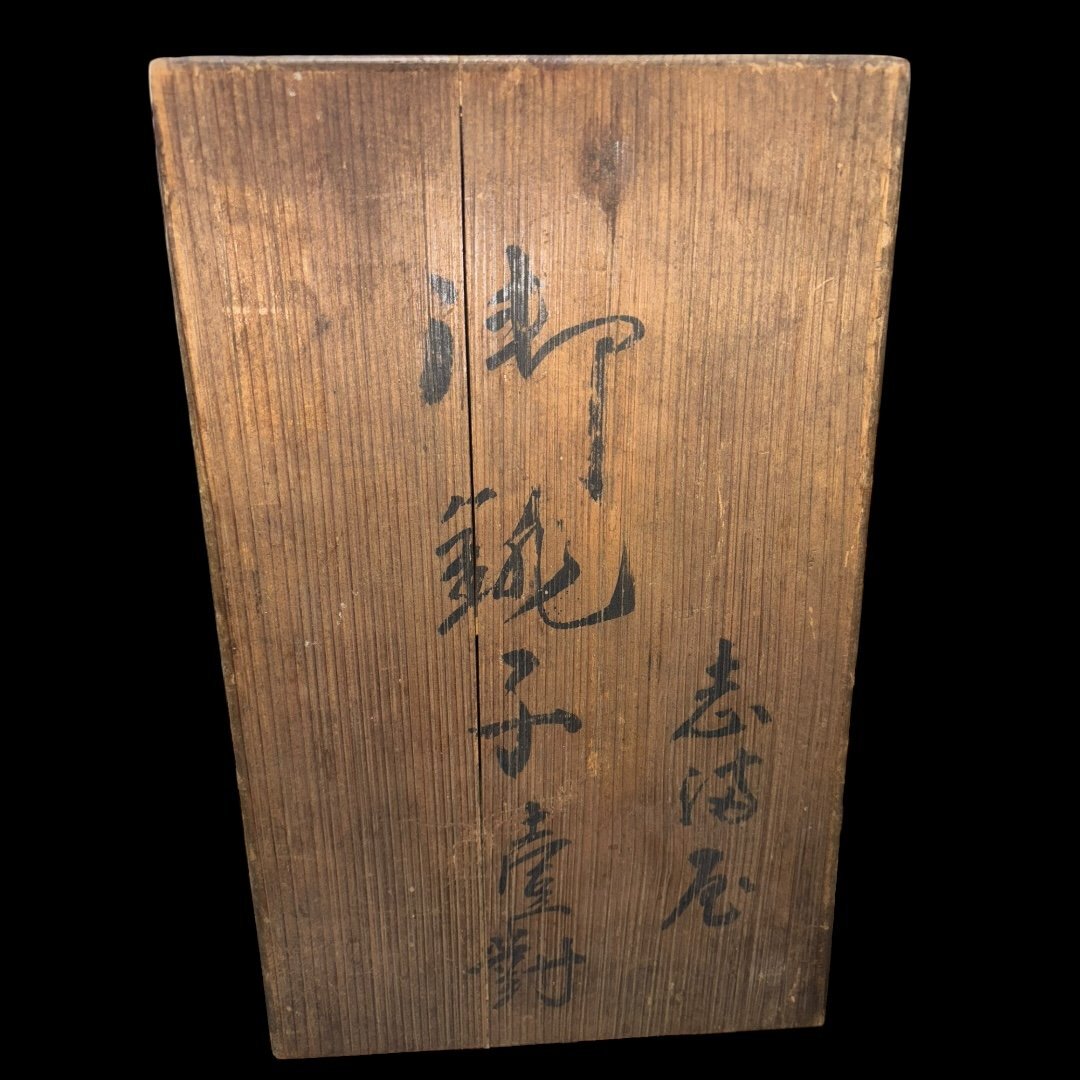 志満屋
御銚子壹對